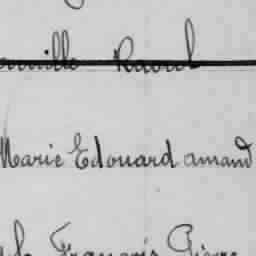 Raoul
Marie Edouard amand
François Pierre